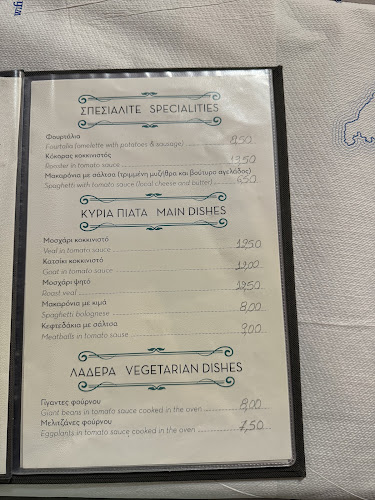 wifi
ΣΠΕΣΙΑΛΙΤΕ SPECIALITIES
Φουρτάλια
Fourtalia (omelette with potatoes & sausage) 8,50
Κόκορας κοκκινιστός
Rooster in tomato sauce 12,50
Μακαρόνια με σάλτσα (τριμμένη μυζήθρα και βούτυρο αγελάδος)
Spaghetti with tomato sauce (local cheese and butter) 6,50
ΚΥΡΙΑ ΠΙΑΤΑ MAIN DISHES
Μοσχάρι κοκκινιστό
Veal in tomato sauce 12,50
Κατσίκι κοκκινιστό
Goat in tomato sauce
Μοσχάρι ψητό
Roast veal 12,50
Μακαρόνια με κιμά
Spaghetti bolognese 8,00
Κεφτεδάκια με σάλτσα
Meatballs in tomato sause 9,00
ΛΑΔΕΡΑ VEGETARIAN DISHES
Γίγαντες φούρνου
Giant beans in tomato sauce cooked in the oven 8,00
Μελιτζάνες φούρνου
Eggplants in tomato sauce cooked in the oven 7,50